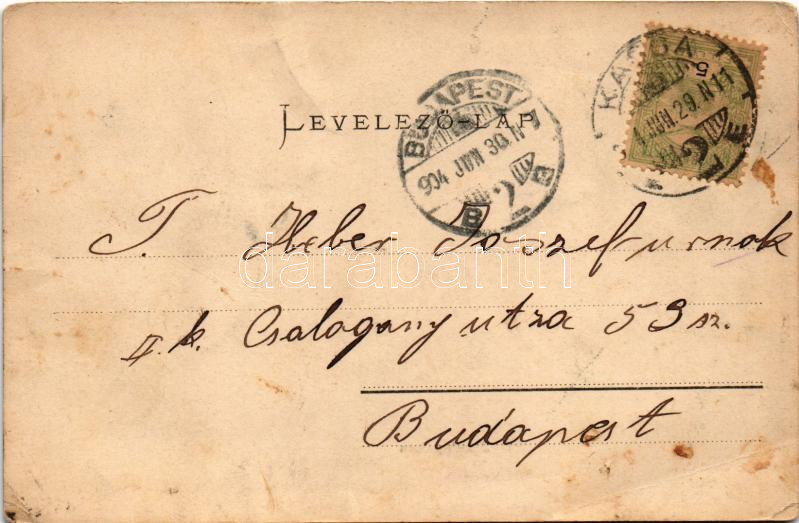 KASSA
5
29. N 11
BUDAPEST
904 JUN 30. N 7
B B
LEVELEZŐ-LAP
T. Heber Jószef urnak
darabanth
II. k. Csalogany utza 53 sz.
Budapest